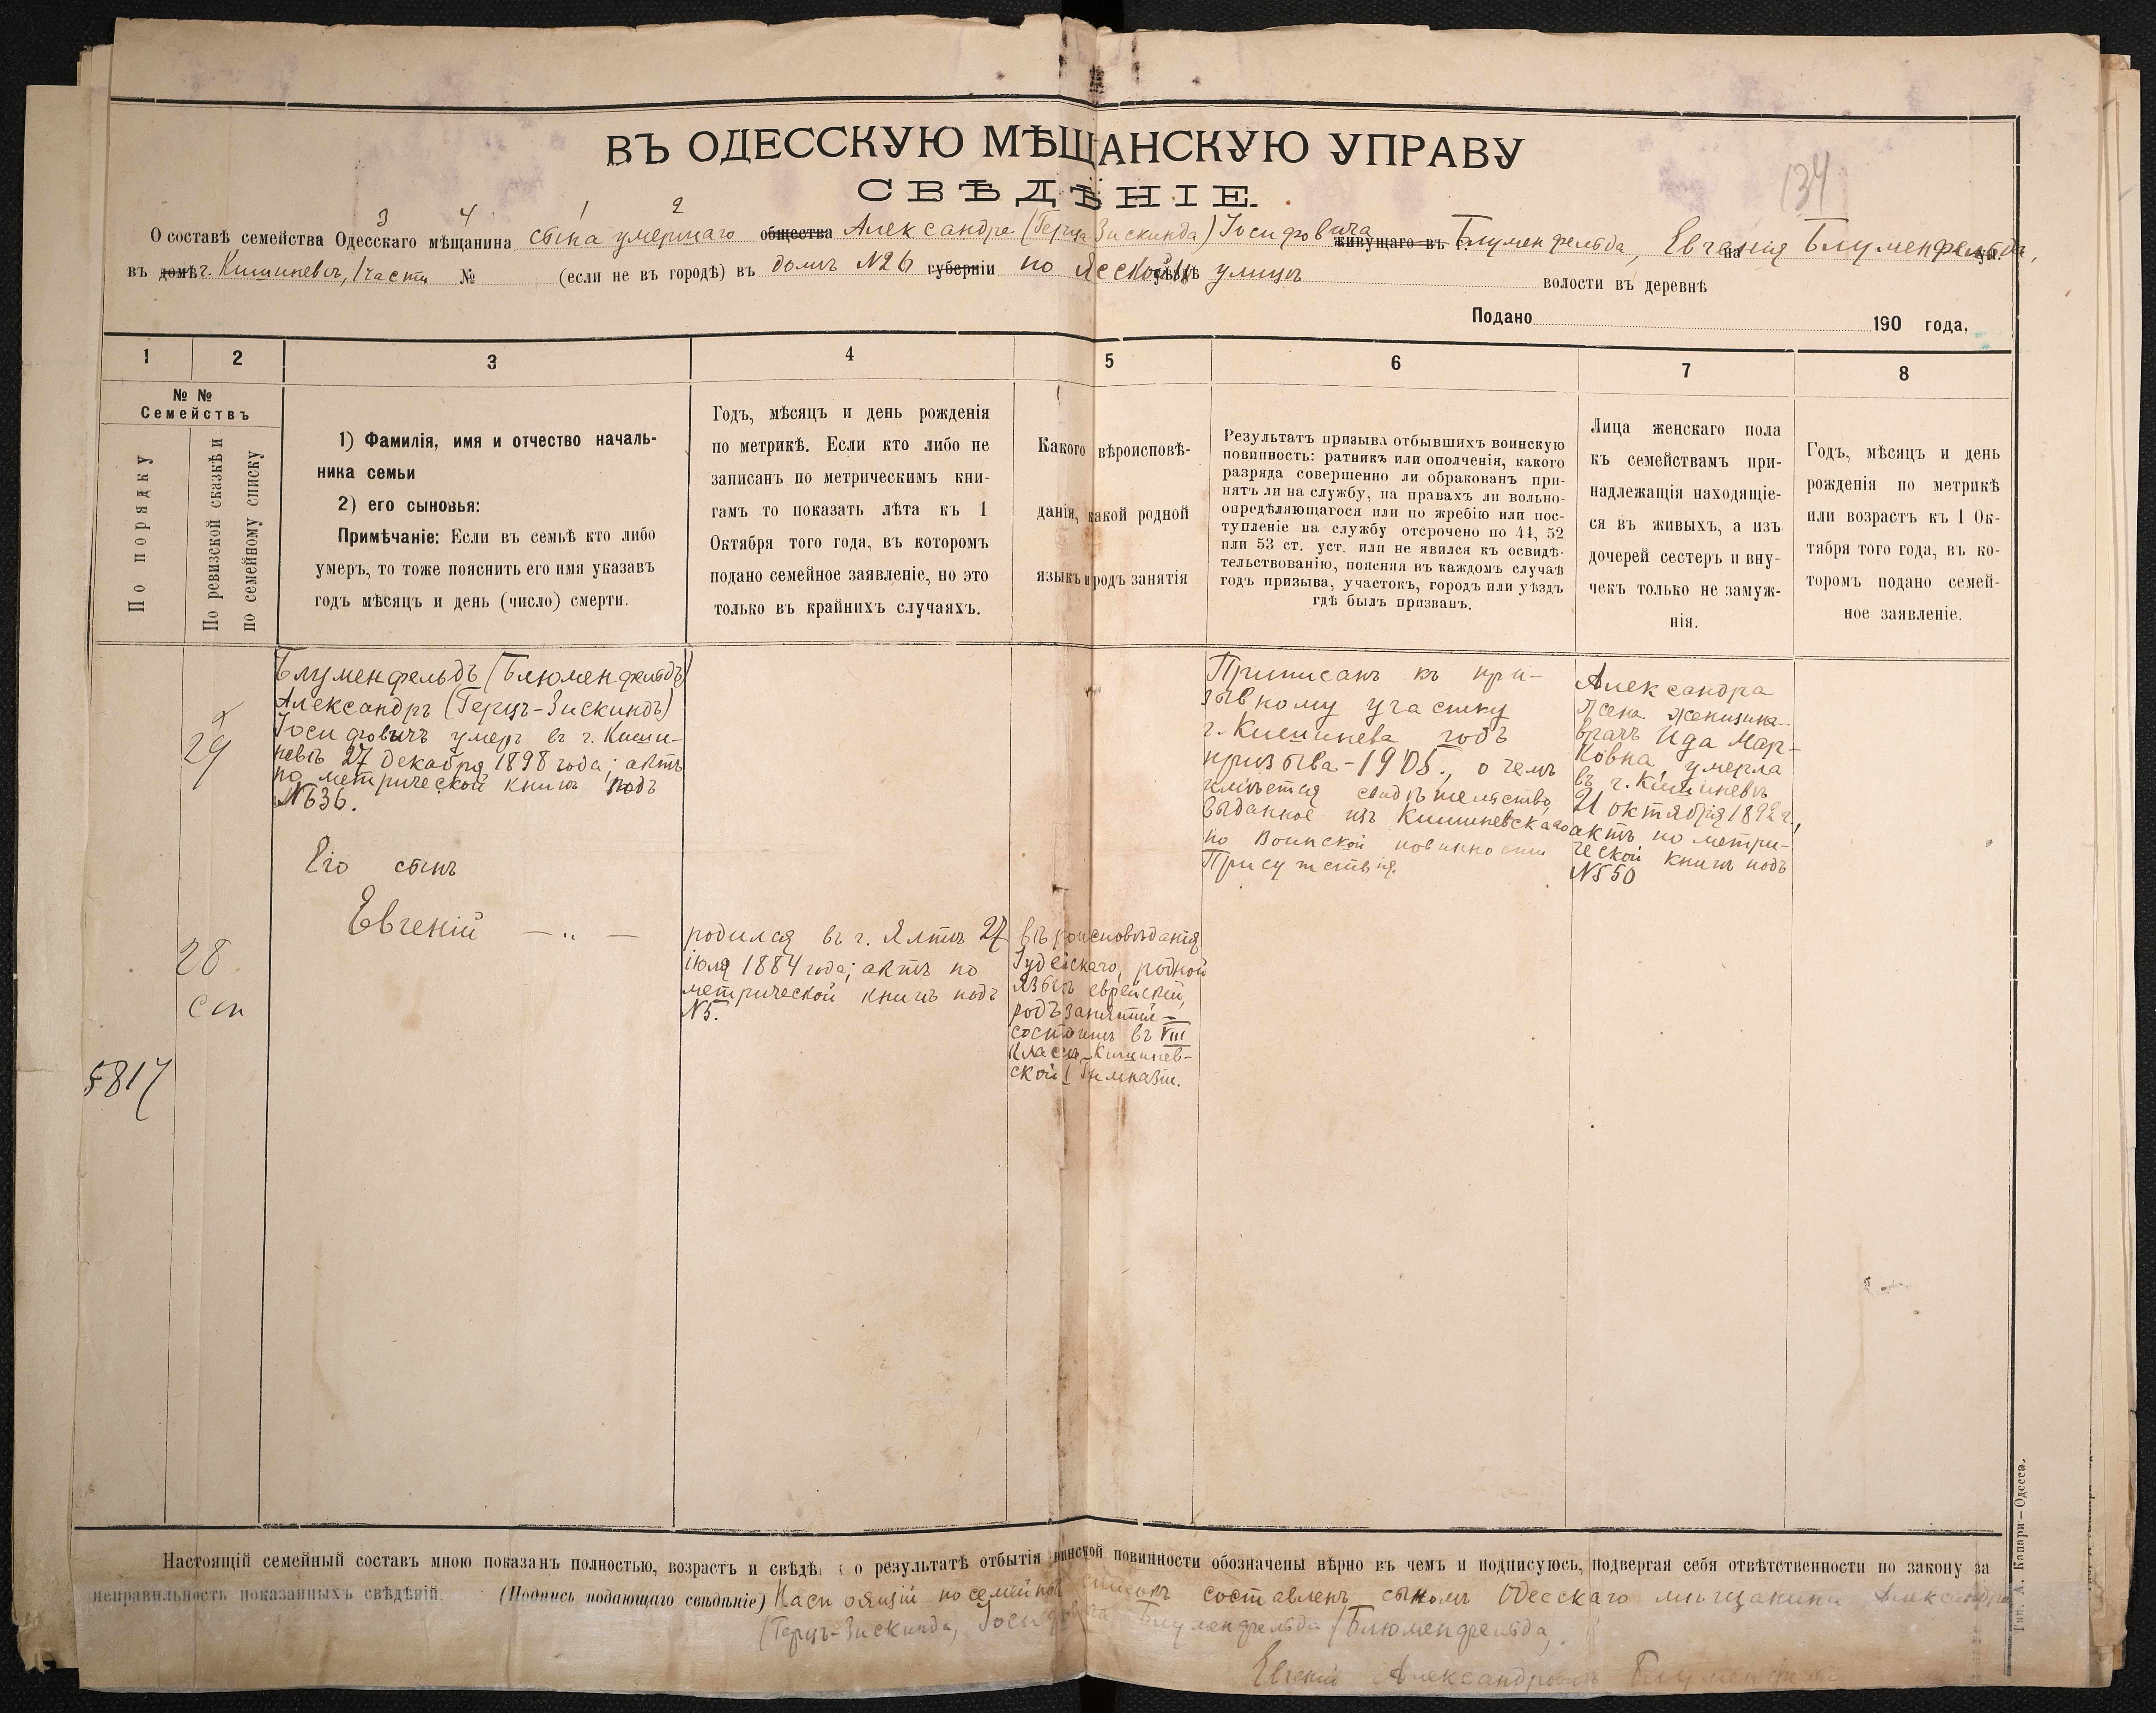 ВЪ ОДЕССКУЮ МѢЩАНСКУЮ УПРАВУ
СВѢДѢНІЕ.
134
3 4 1 2
О составѣ семейства Одесскаго мѣщанина сына умершаго общества Александра (Герца Зискинда) Іосифовича живущаго въ г. Блуменфельда, Евгенія Блуменфельда,
въ домѣ г. Кишиневѣ, I части № (если не въ городѣ) въ домѣ №26 губерніи по Ясской уѣздѣ улицѣ волости въ деревнѣ
Подано 190 года.
1 2 3 4 5 6 7 8
№ №
Семействъ
По порядку
По ревизской сказкѣ и
по семейному списку
1) Фамилія, имя и отчество началь-
ника семьи
2) его сыновья:
Примѣчаніе: Если въ семьѣ кто либо
умеръ, то тоже пояснить его имя указавъ
годъ мѣсяцъ и день (число) смерти.
Годъ, мѣсяцъ и день рожденія
по метрикѣ. Если кто либо не
записанъ по метрическимъ кни-
гамъ то показать лѣта къ 1
Октября того года, въ которомъ
подано семейное заявленіе, но это
только въ крайнихъ случаяхъ.
Какого вѣроисповѣ-
данія, какой родной
языкъ и родъ занятія
Результатъ призыва отбывшихъ воинскую
повинность: ратникъ или ополченія, какого
разряда совершенно ли обракованъ при-
нятъ ли на службу, на правахъ ли вольно-
опредѣляющагося или по жребію или пос-
тупленіе на службу отсрочено по 44, 52
или 53 ст. уст. или не явился къ освидѣ-
тельствованію, поясняя въ каждомъ случаѣ
годъ призыва, участокъ, городъ или уѣздъ
гдѣ былъ призванъ.
Лица женскаго пола
къ семействамъ при-
надлежащія находящіе-
ся въ живыхъ, а изъ
дочерей сестеръ и вну-
чекъ только не замуж-
нія.
Годъ, мѣсяцъ и день
рожденія по метрикѣ
или возрастъ къ 1 Ок-
тября того года, въ ко-
торомъ подано семей-
ное заявленіе.
29
Блуменфельдъ (Блюменфельдъ)
Александръ (Герцъ-Зискиндъ)
Іосифовичъ умеръ въ г. Киши-
невѣ 27 декабря 1898 года; актъ
по метрической книгѣ подъ
№636.
Его сынъ
Евгеній — „ —
28
5817
родился въ г. Ялтѣ 27
іюля 1884 года; актъ по
метрической книгѣ подъ
№5.
вѣроисповѣданія
Іудейскаго, родной
языкъ еврейскій,
родъ занятій —
состоитъ въ VIII
классѣ Кишинев-
ской I Гимназіи.
Приписанъ къ при-
зывному участку
г. Кишинева годъ
призыва - 1905., о чемъ
имѣется свидѣтельство,
выданное изъ Кишиневскаго
по Воинской повинности
Присутствія.
Александра
жена женщина-
врачъ Ида Мар-
ковна, умерла
въ г. Кишиневѣ
21 октября 1892 г.,
актъ по метри-
ческой книгѣ подъ
№550
Настоящій семейный составъ мною показанъ полностью, возрастъ и свѣдѣ о результатѣ отбытія воинской повинности обозначены вѣрно въ чемъ и подписуюсь, подвергая себя отвѣтственности по закону за
неправильность показанныхъ свѣдѣній. (Подпись подающаго свѣдѣніе) Настоящій посемейный списокъ составленъ сыномъ Одесскаго мѣщанина Александра
(Герцъ-Зискинда, Іосифовича Блуменфельда /Блюменфельда,
Евгеній Александровичъ Блуменфельдъ
Тип. А. Капари—Одесса.